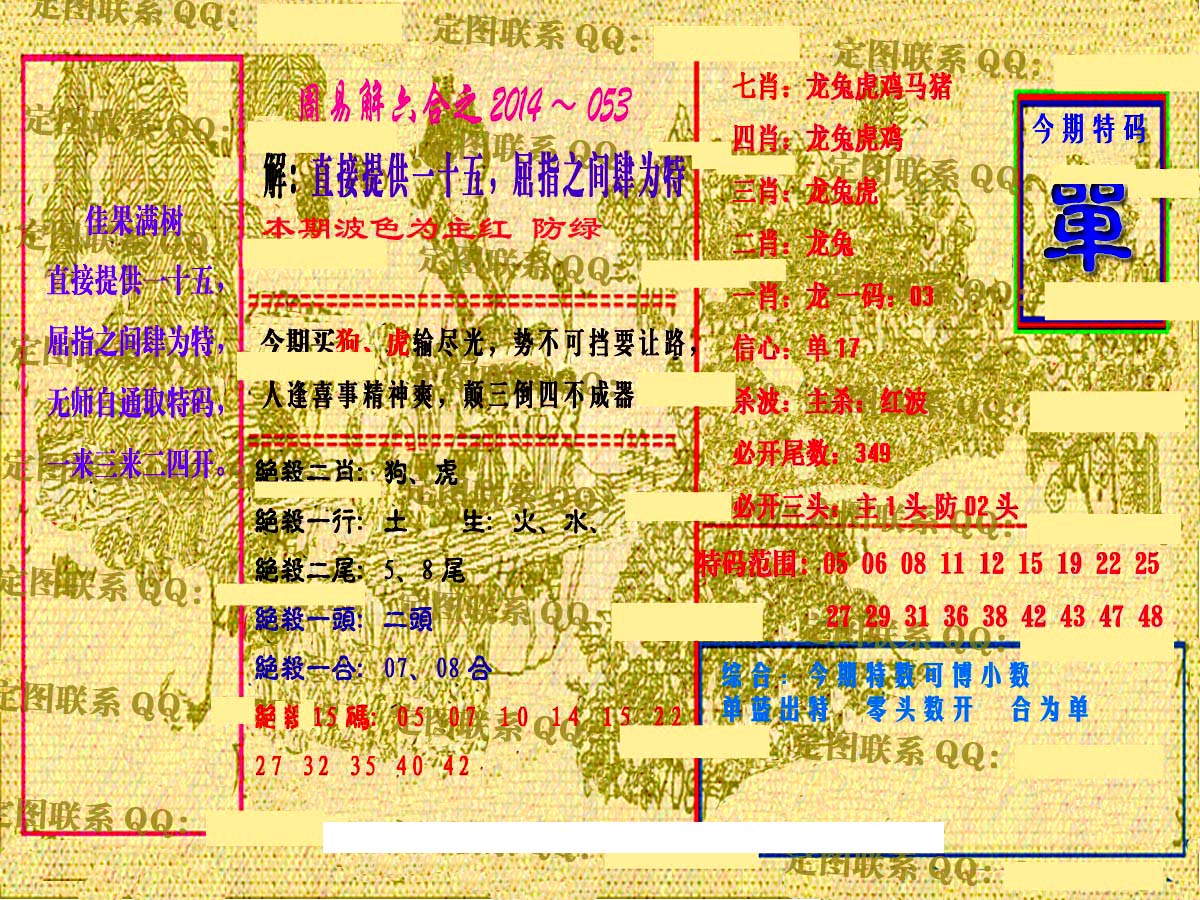 周易解六合之 2014～053
佳果满树
直接提供一十五，
屈指之间肆为特，
无师自通取特码，
一来三来二四开。
解：直接提供一十五，屈指之间肆为特
本期波色为主红 防绿
今期买狗、虎输尽光，势不可挡要让路，
人逢喜事精神爽，颠三倒四不成器
絕殺二肖：狗、虎
絕殺一行：土 生：火、水、
絕殺二尾：5、8 尾
絕殺一頭：二頭
絕殺一合：07、08 合
絕殺 15 碼：05 07 10 14 15 22
27 32 35 40 42
七肖：龙兔虎鸡马猪
四肖：龙兔虎鸡
三肖：龙兔虎
二肖：龙兔
一肖：龙 一码：03
信心：单 17
杀波：主杀：红波
必开尾数：349
必开三头：主 1 头 防 02 头
今期特码
單
特码范围：05 06 08 11 12 15 19 22 25
27 29 31 36 38 42 43 47 48
综合：今期特数可博小数
单蓝出特 零头数开 合为单
定图联系 QQ：
定图联系 QQ：
定图联系 QQ：
定图联系 QQ：
定图联系 QQ：
定图联系 QQ：
定图联系 QQ：
定图联系 QQ：
定图联系 QQ：